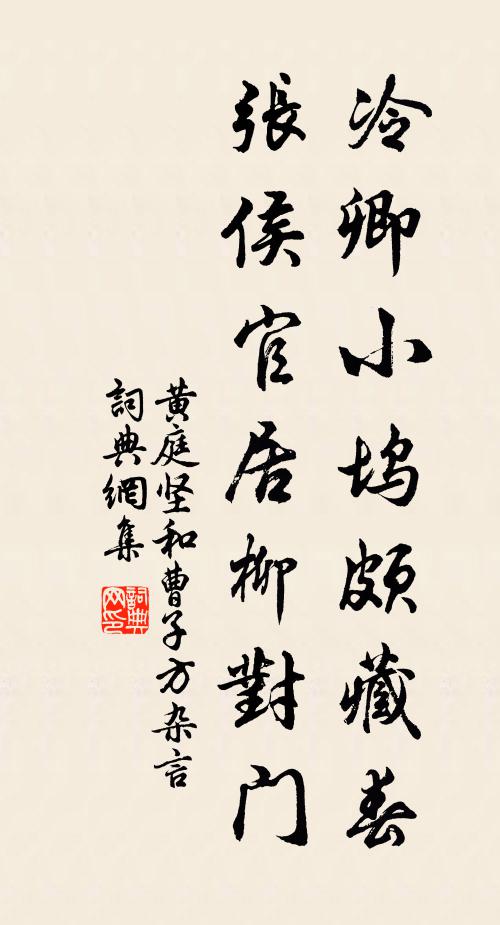 冷卿小坞頗藏春
張侯官居柳對門
黄庭坚和曹子方杂言
詞典網集
詞典网印